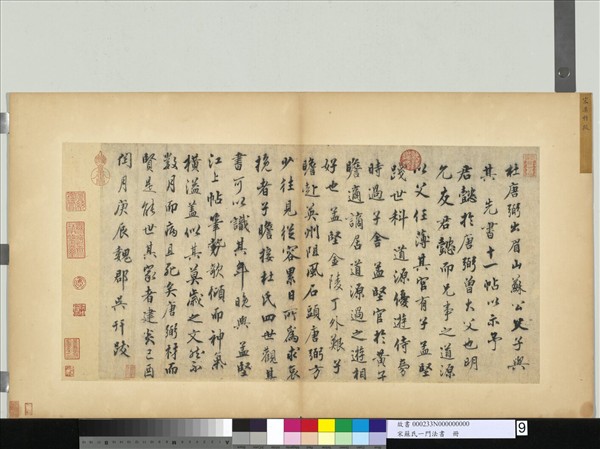 杜唐弼出眉山蘇公父子與
其先書十一帖以示予
君懿於唐弼曾大父也明
允友君懿而兄事之道源
以父任薄其官有子孟堅
踐世科道源優遊侍養
時過子舍孟堅官於黃子
瞻適謫居道源過之遊相
好也孟堅金陵丁外艱子
瞻赴英州阻風石頭唐弼方
少往見從容累日所為求哀
挽者子瞻接杜氏四世觀其
書可以識其早晚與孟堅
江上帖筆勢欹傾而神氣
橫溢蓋似其莫歲之文然不
數月而病且死矣唐弼材而
賢是能世其家者建炎己酉
閏月庚辰魏郡吳幵跋
故書 000233N000000000
宋蘇氏一門法書 冊
9